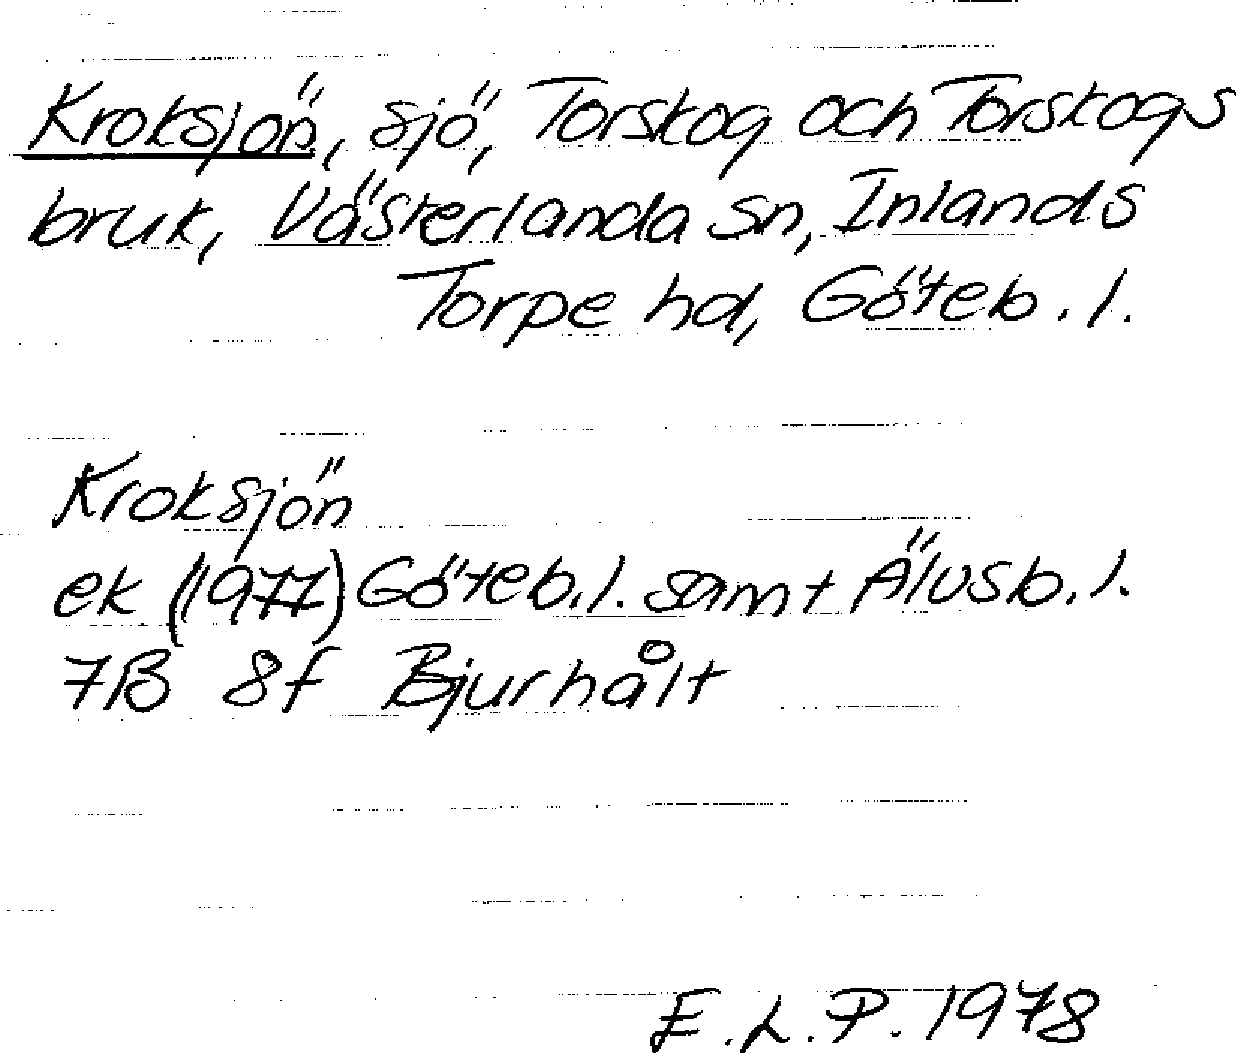 Kroksjön, sjö, Torskog och Torskogs
bruk, Västerlanda sn, Inlands
Torpe hd, Göteb. l.
Kroksjön
ek (1977) Göteb. l. samt Älvsb. l.
7B 8f Bjurhålt
E. L. P. 1978